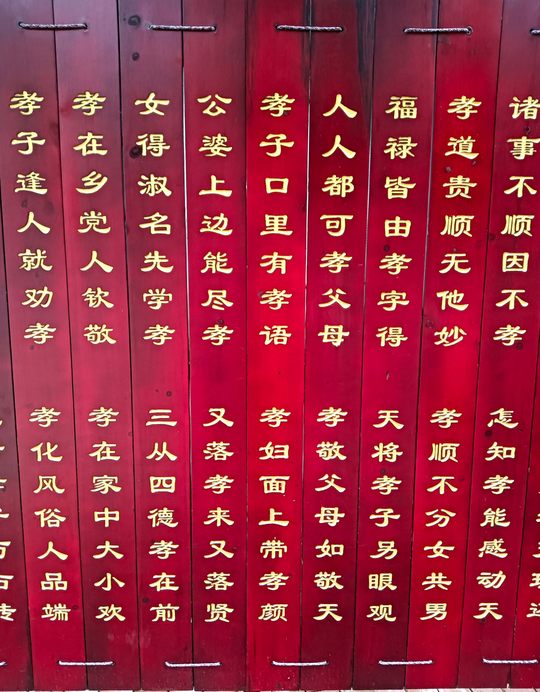 诸事不顺因不孝
怎知孝能感动天
孝道贵顺无他妙
孝顺不分女共男
福禄皆由孝字得
天将孝子另眼观
人人都可孝父母
孝敬父母如敬天
孝子口里有孝语
孝妇面上带孝颜
公婆上边能尽孝
又落孝来又落贤
女得淑名先学孝
三从四德孝在前
孝在乡党人钦敬
孝在家中大小欢
孝子逢人就劝孝
孝化风俗人品端